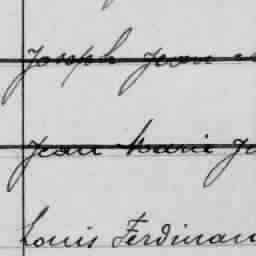 Joseph Jean
Jean Marie
Louis Ferdinan